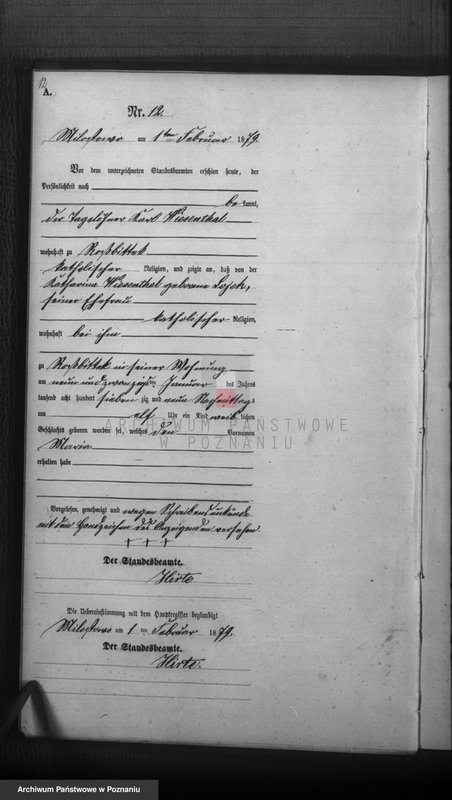 12
A.
Nr. 12.
Miloslawo am 1ten Februar 1879.
Vor dem unterzeichneten Standesbeamten erschien heute, der
Persönlichkeit nach
bekannt,
der Tagelöhner Karl Wiesenthal
wohnhaft zu Roßbittek
katholischer Religion, und zeigte an, daß von der
Katharina Wiesenthal geborene Lojek,
seiner Ehefrau
katholischer Religion,
wohnhaft bei ihm
zu Roßbittek in seiner Wohnung
am neun und zwanzigsten Januar des Jahres
tausend acht hundert sieben zig und neun Nachmittags
um elf Uhr ein Kind weiblichen
Geschlechts geboren worden sei, welches den Vornamen
Maria
erhalten habe
Vorgelesen, genehmigt und wegen Schreibensunkunde
mit den Handzeichen des Anzeigenden versehen
† † †
Der Standesbeamte.
Hirte
Die Uebereinstimmung mit dem Hauptregister beglaubigt
Miloslawo am 1ten Februar 1879.
Der Standesbeamte.
Hirte.
ARCHIWUM PAŃSTWOWE
W POZNANIU
Archiwum Państwowe w Poznaniu